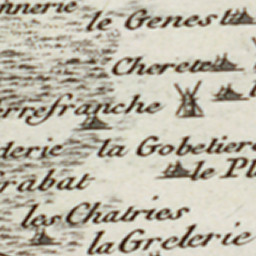 nnerie
le Genest
Cherete
errefranche
derie la Gobetier
frabat le Pl
les Chatries
la Grelerie